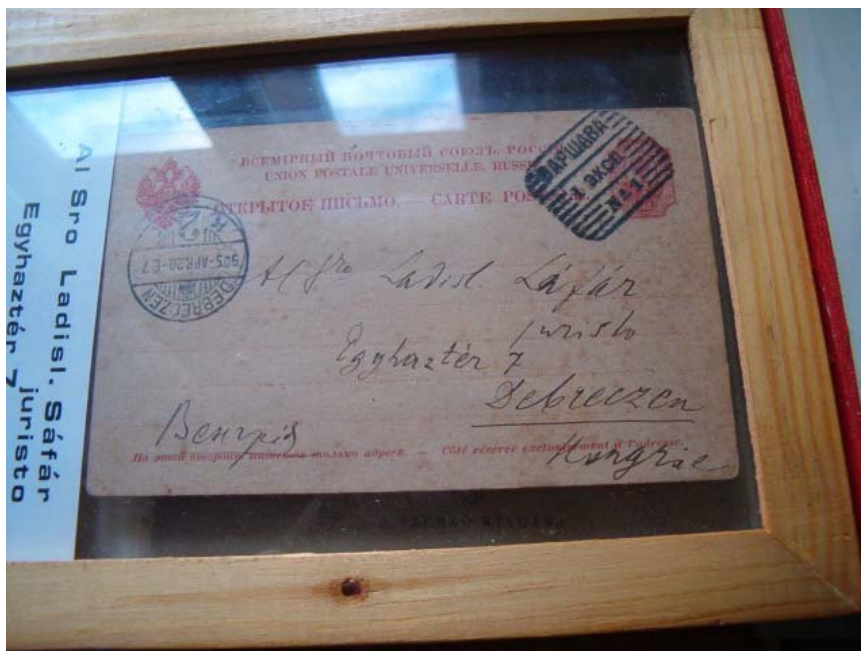 Al Sro Ladisl. Sáfár
juristo
Egyhaztér 7
ВСЕМІРНЫЙ ПОЧТОВЫЙ СОЮЗЪ. РОССІЯ
UNION POSTALE UNIVERSELLE. RUSSIE
ОТКРЫТОЕ ПИСЬМО. — CARTE POSTALE.
ВАРШАВА
ЭКСП.
№1
905-APR.20
DEBRECZEN
Al Sro Ladisl. Sáfár
juristo
Egyhaztér 7
Debreczen
Венгрія
На этой сторонѣ пишется только адресъ. — Côté réservé exclusivement à l'adresse.
Hongrie
A SZERZŐ KIADÁSA